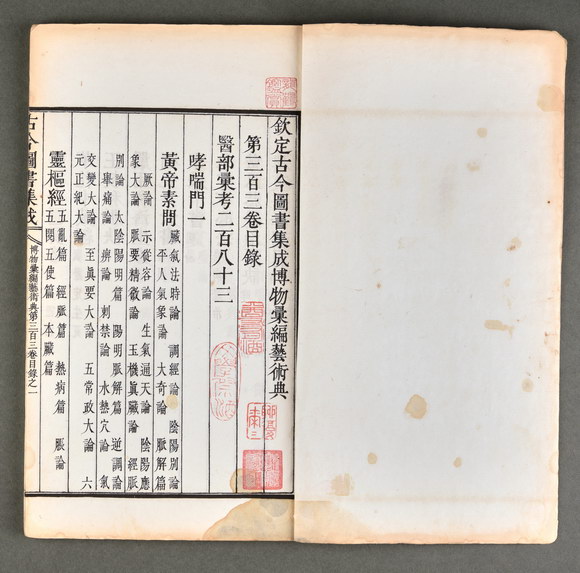 欽定古今圖書集成博物彙編藝術典
第三百三卷目錄
醫部彙考二百八十三
哮喘門一
黃帝素問
臟氣法時論　調經論　陰陽別論
平人氣象論　大奇論　脈解篇
厥論　示從容論　生氣通天論　陰陽應
象大論　脈要精微論　玉機眞臟論　經脈
別論　太陰陽明篇　陽明脈解篇　逆調論
舉痛論　痹論　刺禁論　水熱穴論　氣
交變大論　至眞要大論　五常政大論　六
元正紀大論
靈樞經
五亂篇　經脈篇　熱病篇　脹論
五閱五使篇　本臟篇
古今圖書集成
博物彙編藝術典第三百三卷目錄之一